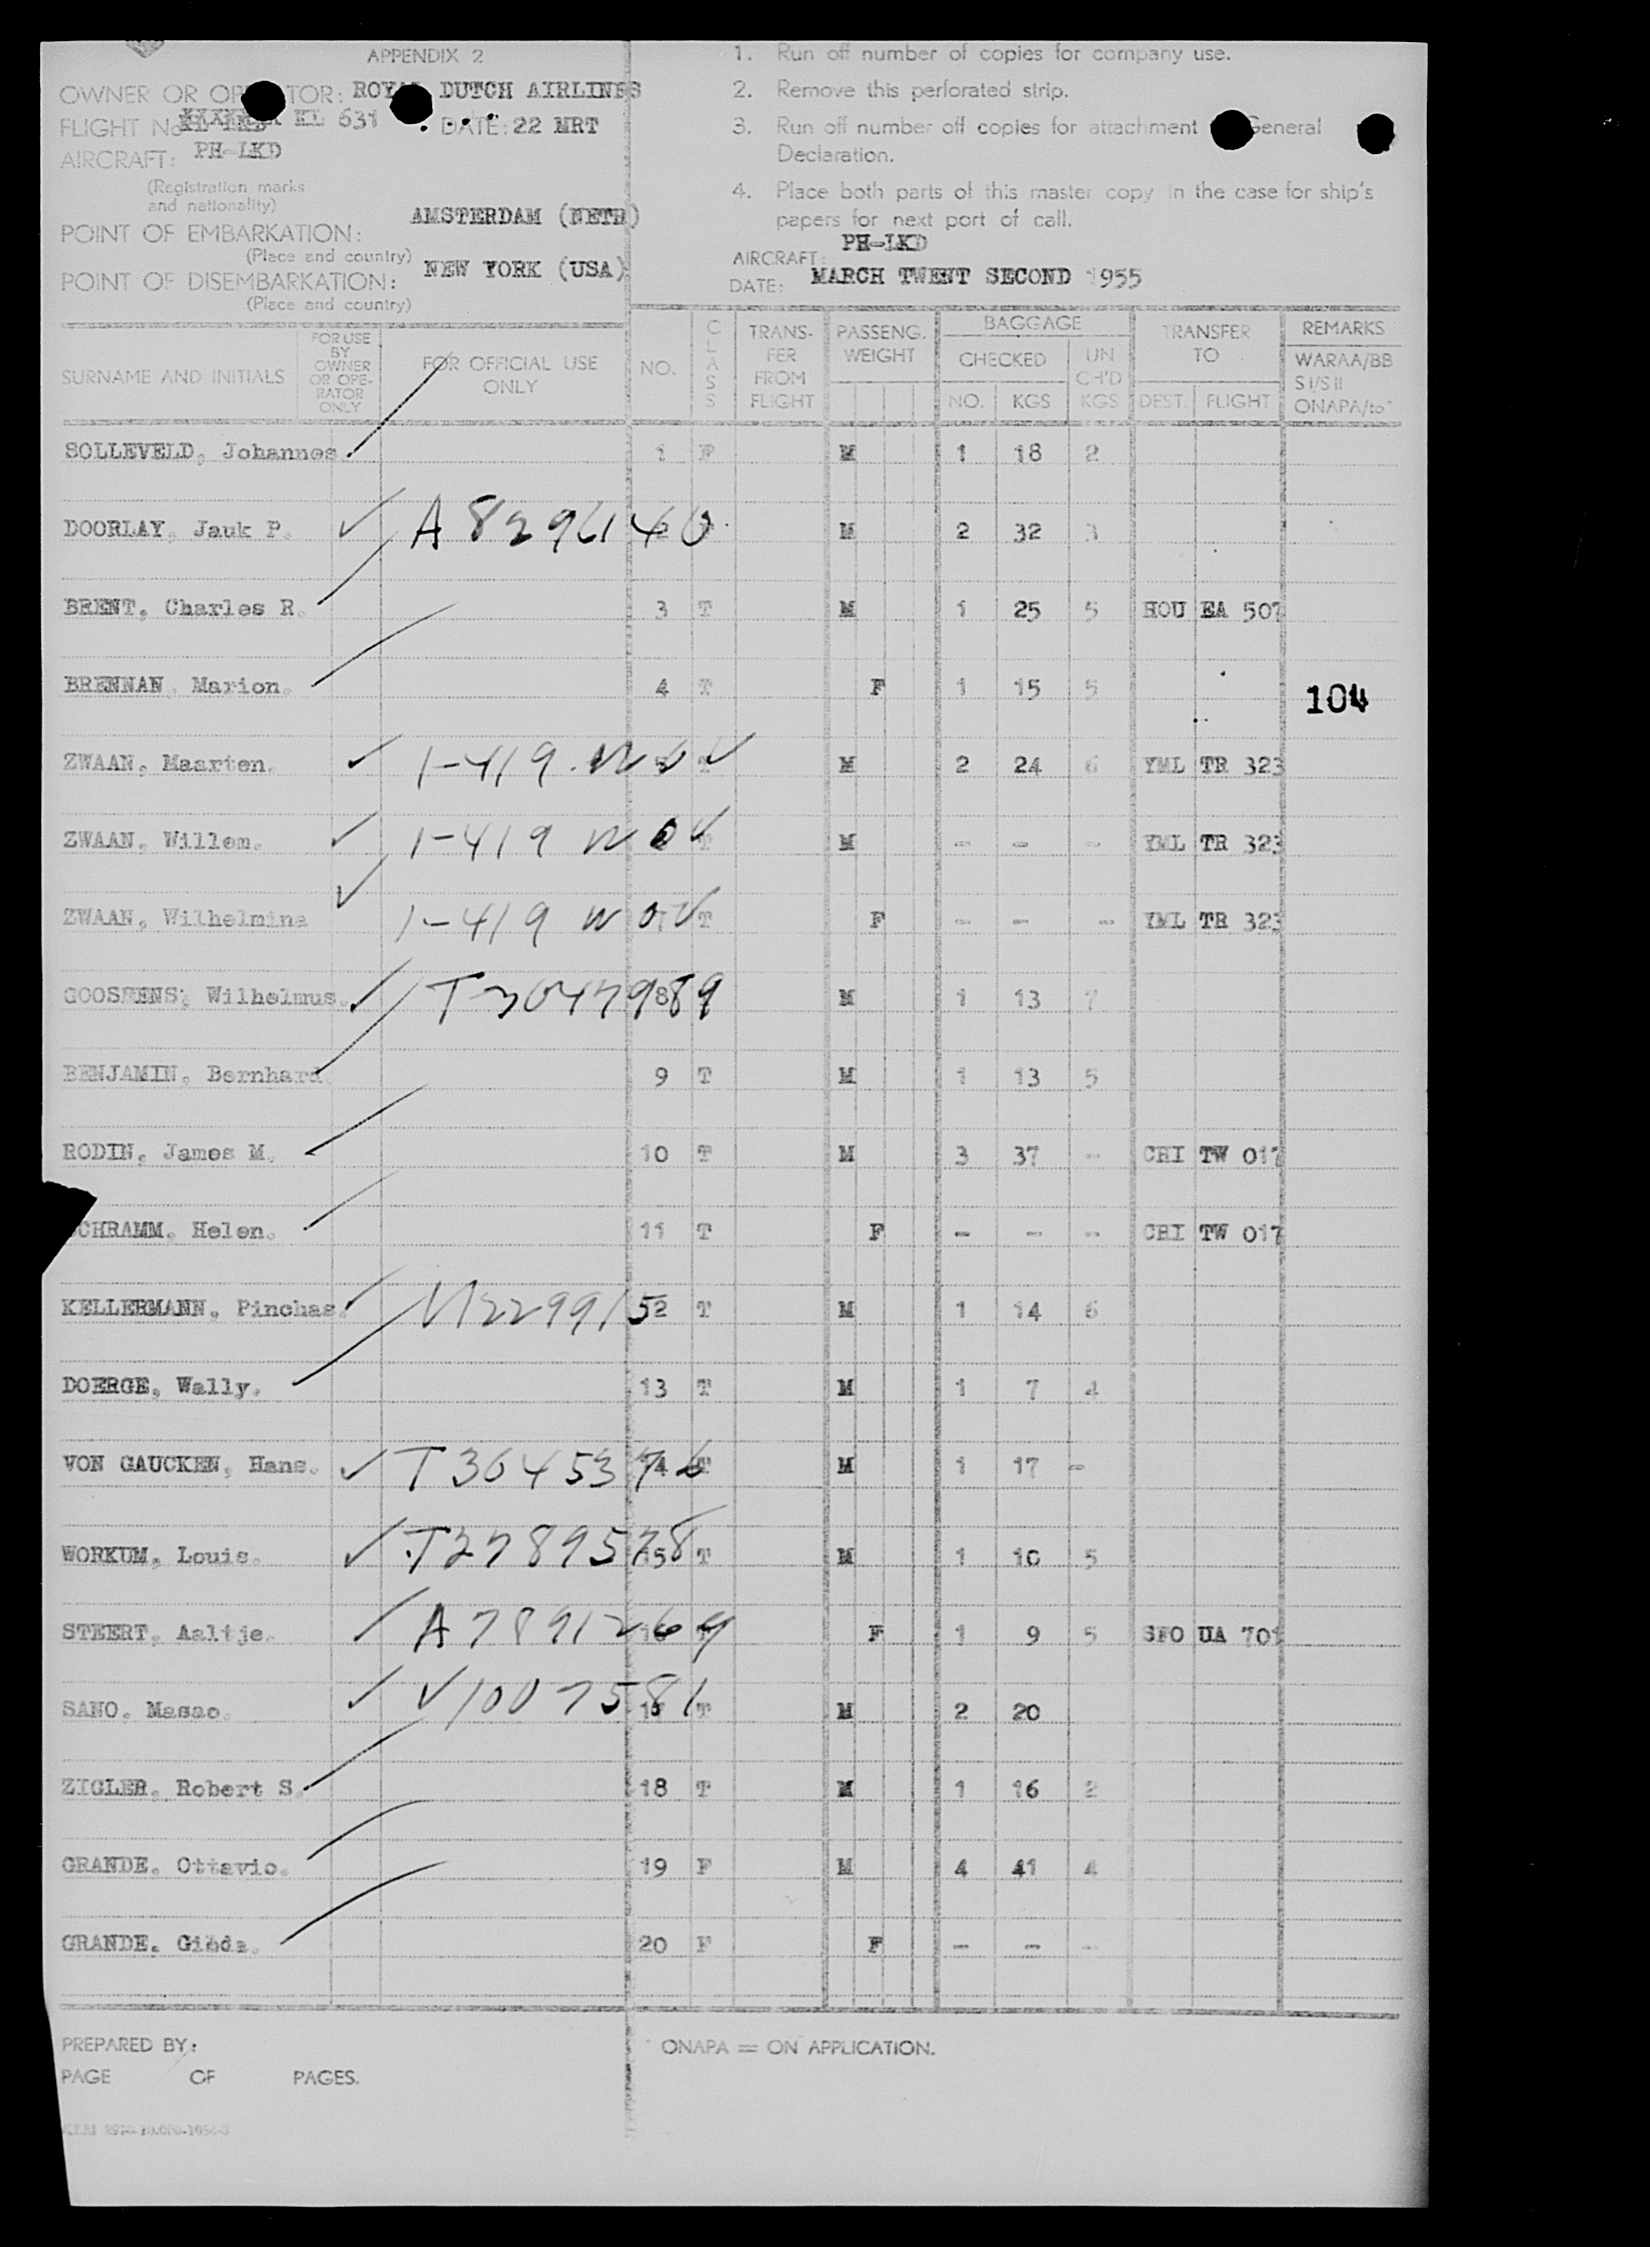 APPENDIX 2
OWNER OR OPERATOR: ROYAL DUTCH AIRLINES
FLIGHT No KL 631 DATE: 22 MRT
AIRCRAFT: PH-LKD
(Registration marks
and nationality)
POINT OF EMBARKATION: AMSTERDAM (NETH)
(Place and country)
POINT OF DISEMBARKATION: NEW YORK (USA)
(Place and country)
1. Run off number of copies for company use.
2. Remove this perforated strip.
3. Run off number off copies for attachment General
Declaration.
4. Place both parts of this master copy in the case for ship's
papers for next port of call.
AIRCRAFT: PH-LKD
DATE: MARCH TWENT SECOND 1955
SURNAME AND INITIALS FOR USE BY OWNER OR OPE-RATOR ONLY FOR OFFICIAL USE ONLY NO. CLASS TRANS-FER FROM FLIGHT PASSENG. WEIGHT BAGGAGE CHECKED NO. KGS UN CH'D KGS TRANSFER TO DEST. FLIGHT REMARKS WARAA/BB S I/S II ONAPA/to
SOLLEVELD, Johannes 1 F M 1 18 2
DOORLAY, Jauk P. A8296140 2 M 2 32 3
BRENT, Charles R. 3 T M 1 25 5 HOU EA 507
BRENNAN, Marion. 4 T F 1 15 5
104
ZWAAN, Maarten. 1-419 NOV T M 2 24 6 YML TR 323
ZWAAN, Willem. 1-419 NOV T M - - - YML TR 323
ZWAAN, Wilhelmina 1-419 NOV T F - - - YML TR 323
GOOSSENS, Wilhelmus. T3047989 8 M 1 13 7
BENJAMIN, Bernhard. 9 T M 1 13 5
RODIN, James M. 10 T M 3 37 - CHI TW 017
SCHRAMM, Helen. 11 T F - - - CHI TW 017
KELLERMANN, Pinchas. V1229915 2 T M 1 14 6
DOERGE, Wally. 13 T M 1 7 4
VON GAUCKEN, Hans. T3645376 14 T M 1 17 -
WORKUM, Louis. T2789578 15 T M 1 10 5
STEERT, Aaltje. A7891269 16 T F 1 9 5 SFO UA 701
SANO, Masao. V1007581 17 T M 2 20
ZIGLER, Robert S. 18 T M 1 16 2
GRANDE, Ottavio. 19 F M 4 41 4
GRANDE, 20 F F - - -
PREPARED BY:
PAGE OF PAGES.
ONAPA = ON APPLICATION.